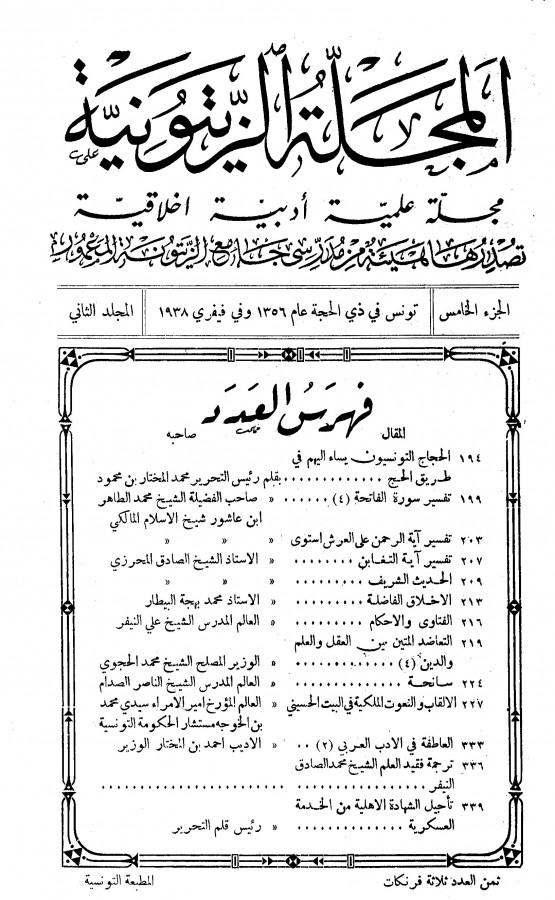 المجلة الزيتونية
مجلة علمية أدبية اخلاقية
تصدرها هيئة من مدرسي جامع الزيتونة المعمور
الجزء الخامس | تونس في ذي الحجة عام ١٣٥٦ وفي فيفري ١٩٣٨ | المجلد الثاني
فهرس العدد
المقال صاحبه
١٩٤ الحجاج التونسيون يساء اليهم في
طريق الحج .............. بقلم رئيس التحرير محمد المختار بن محمود
١٩٩ تفسير سورة الفاتحة (٤) ...... « صاحب الفضيلة الشيخ محمد الطاهر
ابن عاشور شيخ الاسلام المالكي
٢٠٣ تفسير آية الرحمن على العرش استوى « « «
٢٠٧ تفسير آية التغابن ........ « الاستاذ الشيخ الصادق المحرزي
٢٠٩ الحديث الشريف .......... « « «
٢١٣ الاخلاق الفاضلة .......... « الاستاذ محمد بهجة البيطار
٢١٦ الفتاوى والاحكام .......... « العالم المدرس الشيخ علي النيفر
٢١٩ التعاضد المتين بين العقل والعلم
والدين (٤) .............. « الوزير المصلح الشيخ محمد الحجوي
٢٢٤ سانحة ................ « العالم المدرس الشيخ الناصر الصدام
٢٢٧ الالقاب والنعوت الملكية في البيت الحسيني « العالم المؤرخ امير الامراء سيدي محمد
بن الخوجه مستشار الحكومة التونسية
٣٣٣ العاطفة في الادب العربي (٢) .. « الاديب احمد بن المختار الوزير
٣٣٦ ترجمة فقيد العلم الشيخ محمد الصادق
النيفر ........................................
٣٣٩ تأجيل الشهادة الاهلية من الخدمة
العسكرية .............. « رئيس قلم التحرير
ثمن العدد ثلاثة فرنكات المطبعة التونسية